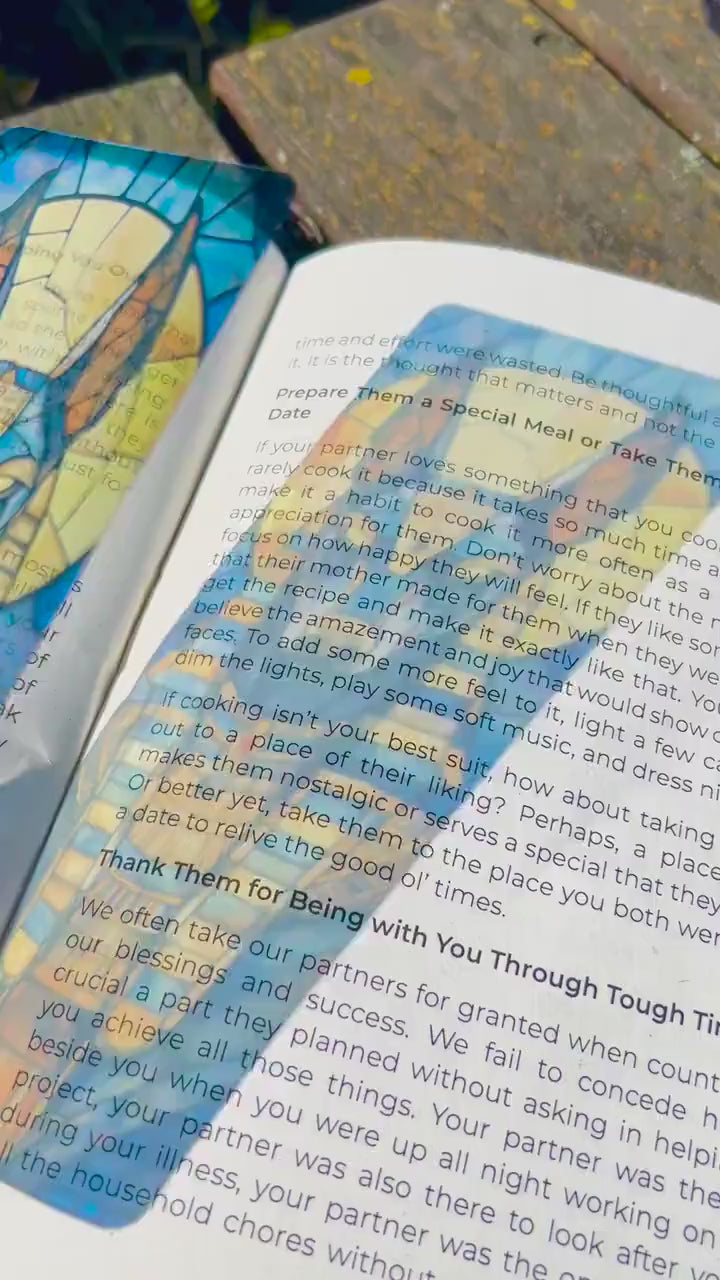 time and effort were wasted. Be thoughtful a
it. It is the thought that matters and not the
Prepare Them a Special Meal or Take Them
Date
If your partner loves something that you coo
rarely cook it because it takes so much time a
make it a habit to cook it more often as a
appreciation for them. Don't worry about the
focus on how happy they will feel. If they like
that their mother made for them when they we
get the recipe and make it exactly like that. You
believe the amazement and joy that would show
faces. To add some more feel to it, light a few ca
dim the lights, play some soft music, and dress ni
If cooking isn't your best suit, how about taking
out to a place of their liking? Perhaps, a place
makes them nostalgic or serves a special that they
Or better yet, take them to the place you both wer
a date to relive the good ol' times.
Thank Them for Being with You Through Tough Tim
We often take our partners for granted when count
our blessings and success. We fail to concede h
crucial a part they planned without asking in helpi
you achieve all those things. Your partner was the
beside you when you were up all night working on
project, your partner was also there to look after
during your illness, your partner was the
ll the household chores without